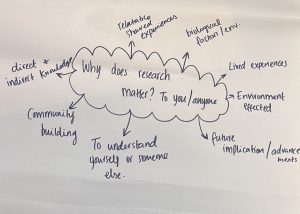 relatable
shared
experiences
biological
factors/env.
direct +
indirect knowledge
Why does research
matter? To you/anyone
Lived experiences
Environment
effected
Community
building
To understand
yourself or someone
else.
future
implication/advance
ments